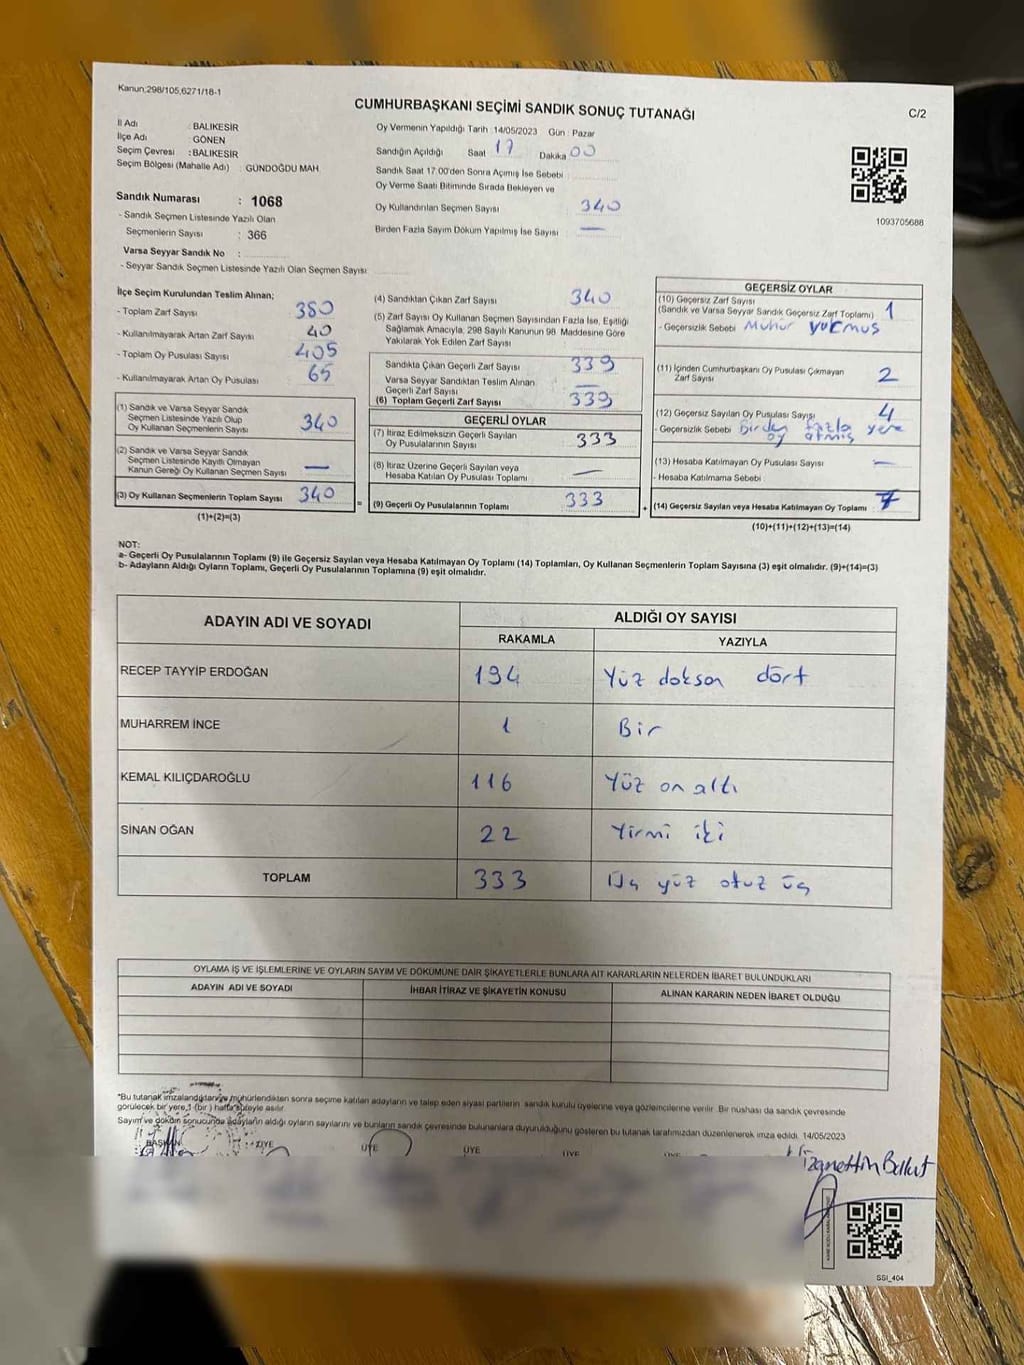 Kanun;298/105,6271/18-1
CUMHURBAŞKANI SEÇİMİ SANDIK SONUÇ TUTANAĞI
C/2
İl Adı : BALIKESİR
İlçe Adı : GÖNEN
Seçim Çevresi : BALIKESİR
Seçim Bölgesi (Mahalle Adı) : GÜNDOĞDU MAH
Sandık Numarası : 1068
- Sandık Seçmen Listesinde Yazılı Olan
Seçmenlerin Sayısı : 366
Varsa Seyyar Sandık No :
- Seyyar Sandık Seçmen Listesinde Yazılı Olan Seçmen Sayısı:
Oy Vermenin Yapıldığı Tarih :14/05/2023 Gün : Pazar
Sandığın Açıldığı Saat 17 Dakika 00
Sandık Saat 17.00'den Sonra Açımış İse Sebebi :
Oy Verme Saati Bitiminde Sırada Bekleyen ve
Oy Kullandırılan Seçmen Sayısı : 340
Birden Fazla Sayım Döküm Yapılmış İse Sayısı : —
1093705688
İlçe Seçim Kurulundan Teslim Alınan;
- Toplam Zarf Sayısı : 380
- Kullanılmayarak Artan Zarf Sayısı : 40
- Toplam Oy Pusulası Sayısı : 405
- Kullanılmayarak Artan Oy Pusulası : 65
(1) Sandık ve Varsa Seyyar Sandık
Seçmen Listesinde Yazılı Olup
Oy Kullanan Seçmenlerin Sayısı : 340
(2) Sandık ve Varsa Seyyar Sandık
Seçmen Listesinde Kayıtlı Olmayan
Kanun Gereği Oy Kullanan Seçmen Sayısı : —
(3) Oy Kullanan Seçmenlerin Toplam Sayısı : 340
(1)+(2)=(3)
(4) Sandıktan Çıkan Zarf Sayısı : 340
(5) Zarf Sayısı Oy Kullanan Seçmen Sayısından Fazla İse, Eşitliği
Sağlamak Amacıyla, 298 Sayılı Kanunun 98. Maddesine Göre
Yakılarak Yok Edilen Zarf Sayısı :
Sandıkta Çıkan Geçerli Zarf Sayısı : 339
Varsa Seyyar Sandıktan Teslim Alınan
Geçerli Zarf Sayısı : —
(6) Toplam Geçerli Zarf Sayısı : 339
GEÇERLİ OYLAR
(7) İtiraz Edilmeksizin Geçerli Sayılan
Oy Pusulalarının Sayısı : 333
(8) İtiraz Üzerine Geçerli Sayılan veya
Hesaba Katılan Oy Pusulaları Toplamı : —
(9) Geçerli Oy Pusulalarının Toplamı : 333
GEÇERSİZ OYLAR
(10) Geçersiz Zarf Sayısı
(Sandık ve Varsa Seyyar Sandık Geçersiz Zarf Toplamı) : 1
- Geçersizlik Sebebi : Mühür
(11) İçinden Cumhurbaşkanı Oy Pusulası Çıkmayan
Zarf Sayısı : 2
(12) Geçersiz Sayılan Oy Pusulası Sayısı : 4
- Geçersizlik Sebebi : Birden fazla yere
oy atmış
(13) Hesaba Katılmayan Oy Pusulası Sayısı : —
- Hesaba Katılmama Sebebi :
(14) Geçersiz Sayılan veya Hesaba Katılmayan Oy Toplamı : 7
(10)+(11)+(12)+(13)=(14)
NOT:
a- Geçerli Oy Pusulalarının Toplamı (9) ile Geçersiz Sayılan veya Hesaba Katılmayan Oy Toplamı (14) Toplamları, Oy Kullanan Seçmenlerin Toplam Sayısına (3) eşit olmalıdır. (9)+(14)=(3)
b- Adayların Aldığı Oyların Toplamı, Geçerli Oy Pusulalarının Toplamına (9) eşit olmalıdır.
ADAYIN ADI VE SOYADI
ALDIĞI OY SAYISI
RAKAMLA YAZIYLA
RECEP TAYYİP ERDOĞAN 194 Yüz doksan dört
MUHARREM İNCE 1 Bir
KEMAL KILIÇDAROĞLU 116 Yüz on altı
SİNAN OĞAN 22 Yirmi iki
TOPLAM 333 Üç yüz otuz üç
OYLAMA İŞ VE İŞLEMLERİNE VE OYLARIN SAYIM VE DÖKÜMÜNE DAİR ŞİKAYETLERLE BUNLARA AİT KARARLARIN NELERDEN İBARET BULUNDUKLARI
ADAYIN ADI VE SOYADI İHBAR İTİRAZ VE ŞİKAYETİN KONUSU ALINAN KARARIN NEDEN İBARET OLDUĞU
*Bu tutanak imzalandıktan ve mühürlendikten sonra seçime katılan adayların ve talep eden siyasi partilerin sandık kurulu üyelerine veya gözlemcilerine verilir. Bir nüshası da sandık çevresinde
görülecek bir yere 1 (bir) hafta süreyle asılır.
Sayım ve döküm sonucunda adayların aldığı oyların sayılarını ve bunların sandık çevresinde bulunanlara duyurulduğunu gösteren bu tutanak tarafımızdan düzenlenerek imza edildi. 14/05/2023
BAŞKAN ÜYE ÜYE ÜYE ÜYE
SSI_404